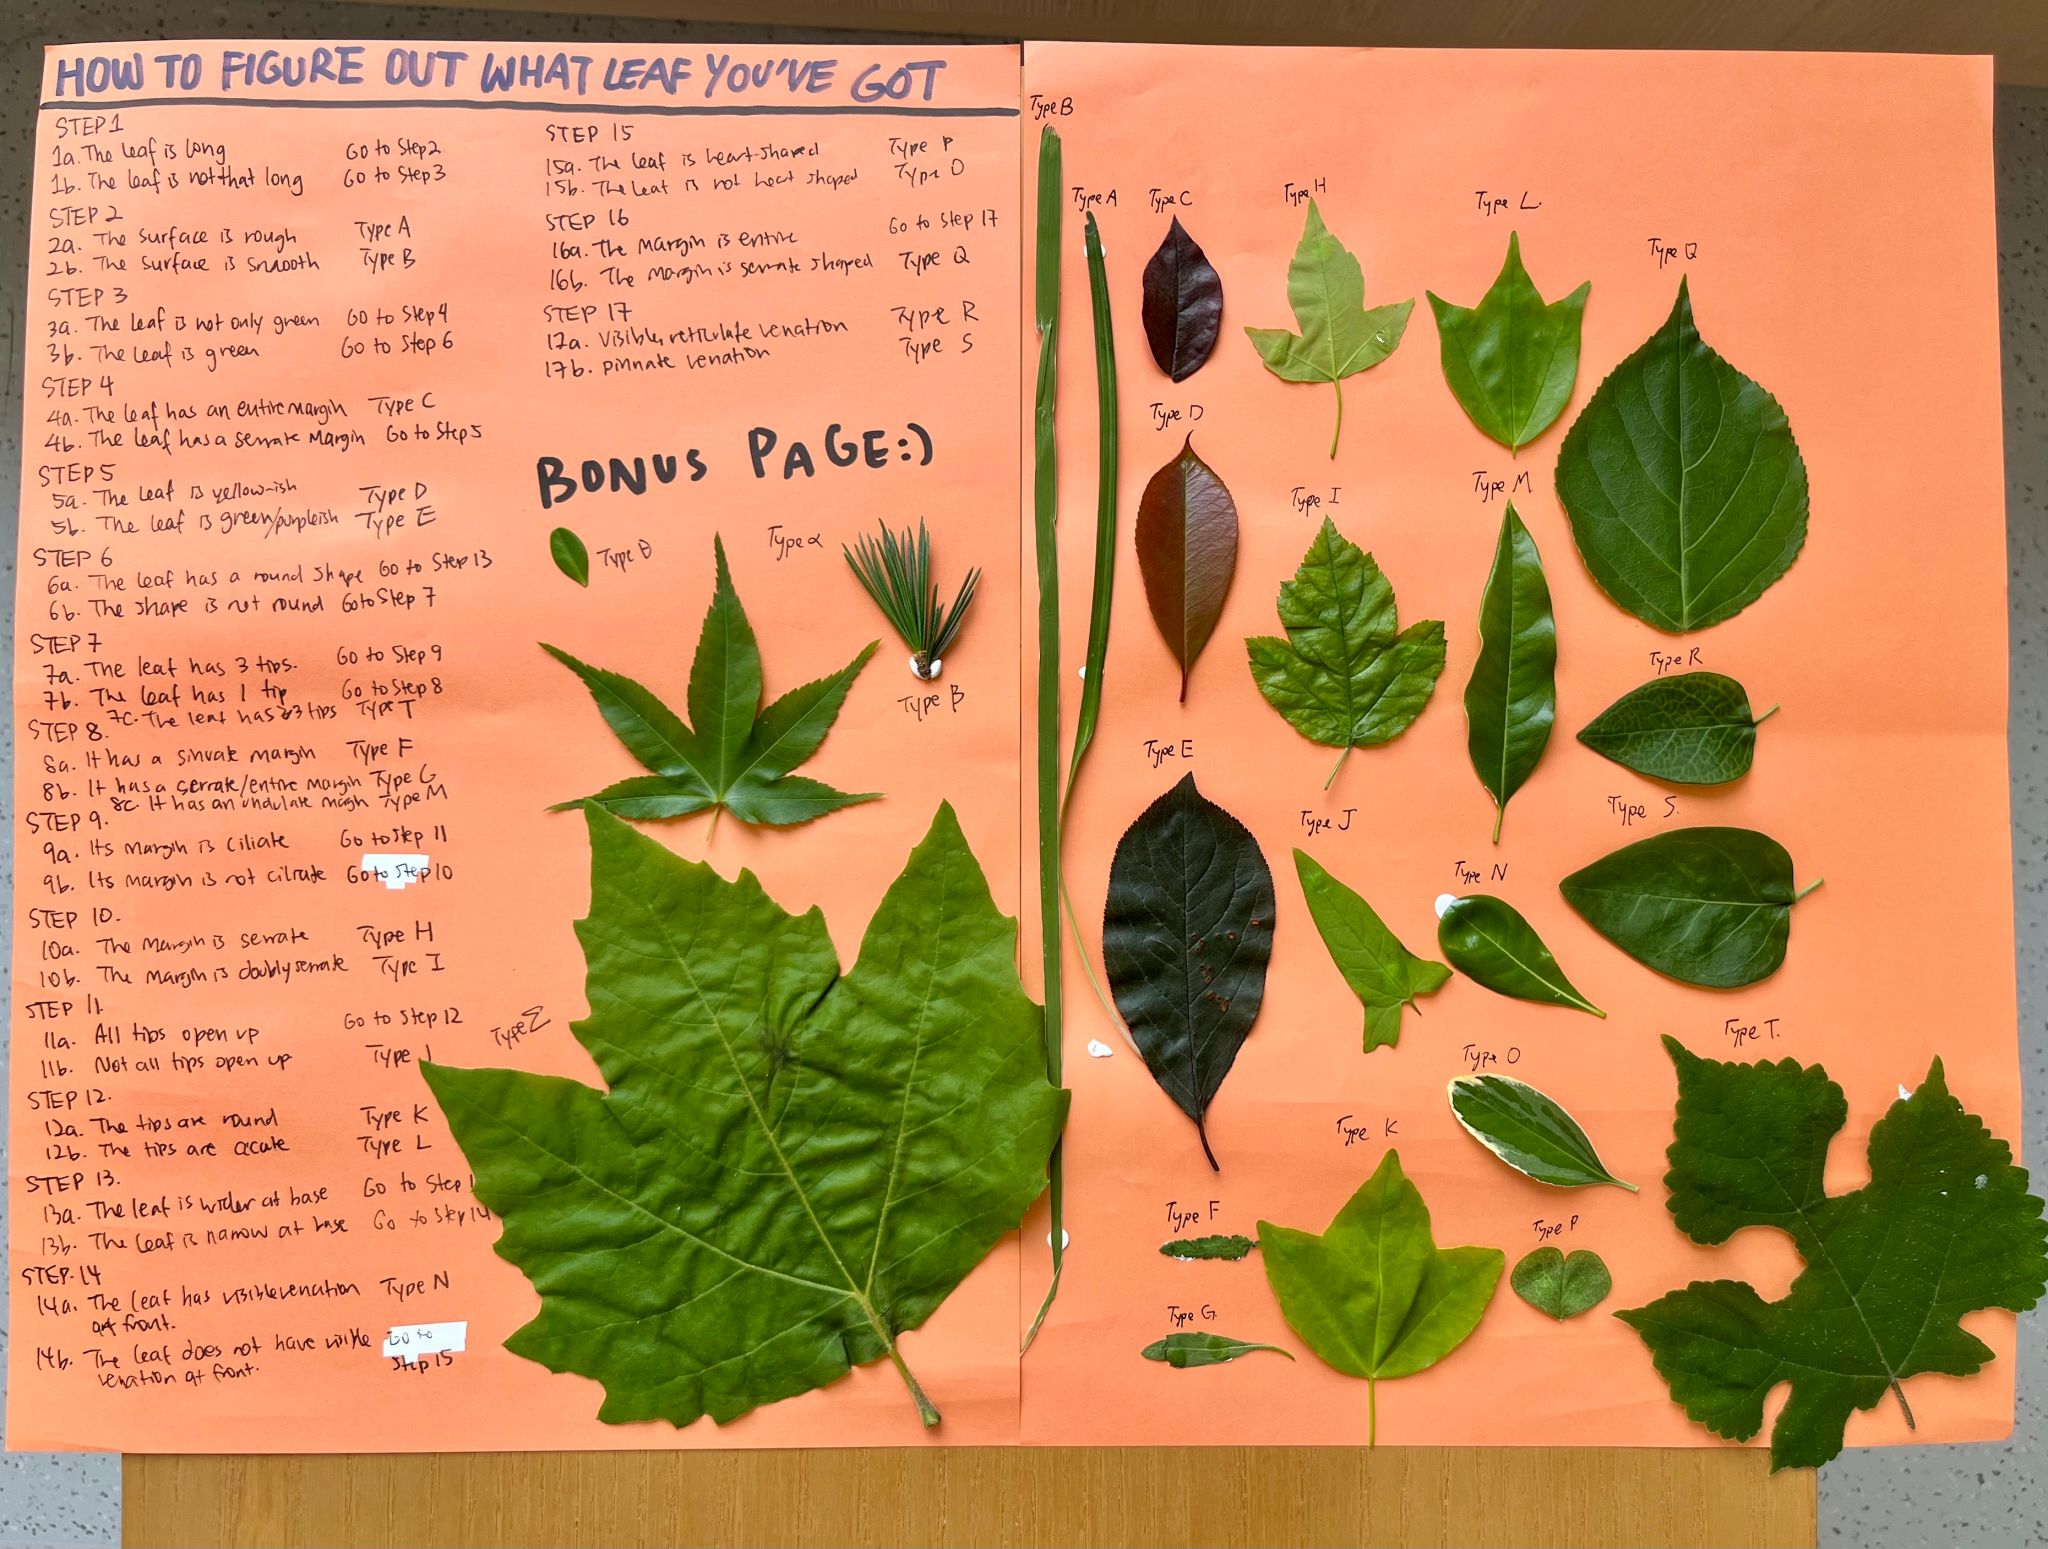 HOW TO FIGURE OUT WHAT LEAF YOU'VE GOT
STEP 1
1a. The leaf is long Go to Step 2
1b. The leaf is not that long Go to Step 3
STEP 2
2a. The surface is rough Type A
2b. The surface is smooth Type B
STEP 3
3a. The leaf is not only green Go to Step 4
3b. The leaf is green Go to Step 6
STEP 4
4a. The leaf has an entire margin Type C
4b. The leaf has a serrate margin Go to Step 5
STEP 5
5a. The leaf is yellow-ish Type D
5b. The leaf is green/purpleish Type E
STEP 6
6a. The leaf has a round shape Go to Step 13
6b. The shape is not round Go to Step 7
STEP 7
7a. The leaf has 3 tips. Go to Step 9
7b. The leaf has 1 tip Go to Step 8
7c. The leaf has 3 tips Type T
STEP 8.
8a. It has a sinuate margin Type F
8b. It has a serrate/entire margin Type G
8c. It has an undulate margin Type M
STEP 9.
9a. Its margin is ciliate Go to Step 11
9b. Its margin is not ciliate Go to Step 10
STEP 10.
10a. The margin is serrate Type H
10b. The margin is doubly serrate Type I
STEP 11.
11a. All tips open up Go to Step 12
11b. Not all tips open up Type J
STEP 12.
12a. The tips are round Type K
12b. The tips are acute Type L
STEP 13.
13a. The leaf is wider at base Go to Step 1
13b. The leaf is narrow at base Go to Step 14
STEP. 14
14a. The leaf has visible venation Type N
at front.
14b. The leaf does not have visible Go to
venation at front. Step 15
STEP 15
15a. The leaf is heart-shaped Type P
15b. The leaf is not heart shaped Type O
STEP 16
16a. The margin is entire Go to Step 17
16b. The margin is serrate shaped Type Q
STEP 17
17a. Visible reticulate venation Type R
17b. pinnate venation Type S
BONUS PAGE:)
Type θ
Type α
Type β
Type Σ
Type B
Type A
Type C
Type H
Type L.
Type Q
Type D
Type I
Type M
Type R
Type E
Type J
Type N
Type S.
Type O
Type T.
Type K
Type F
Type P
Type G.